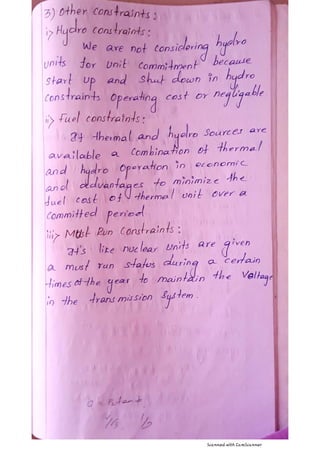 3) Other Constraints:
i) Hydro Constraints:
We are not considering hydro
units for unit commitment because
start up and shut down in hydro
constraints operating cost or negligable
ii) fuel constraints:
If thermal and hydro Sources are
available a Combination of thermal
and hydro Operation in economic
and addvantages to minimize the
fuel cost of thermal unit over a
Committed period
iii) Must Run Constraints:
It's like nuclear units are given
a must run status during a certain
times of the year to maintain the Voltage
in the transmission System.
Scanned with CamScanner